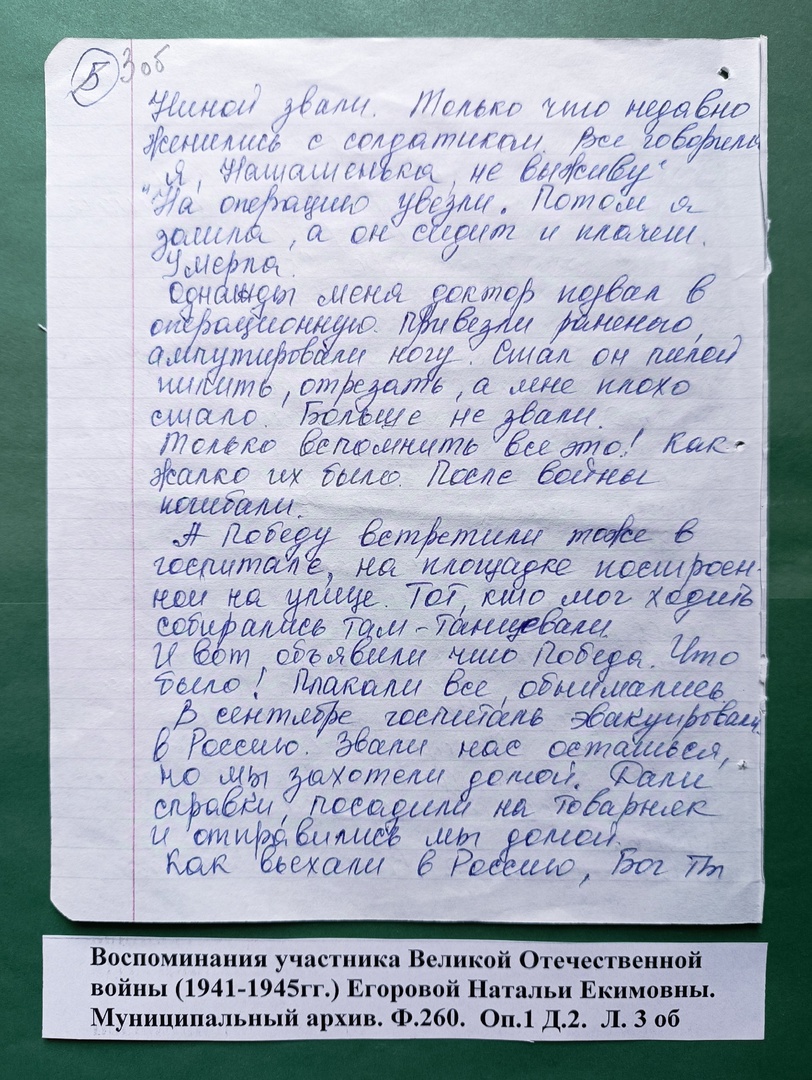 5 3 об
Ниной звали. Только что недавно
женились с солдатиком. Все говорила
"Я, Наташенька, не выживу"
На операцию увезли. Потом я
зашла, а он сидит и плачет.
Умерла.
Однажды меня доктор позвал в
операционную. Привезли раненого,
ампутировали ногу. Стал он пилой
пилить, отрезать, а мне плохо
стало. Больше не звали.
Только вспомнить все это! Как
жалко их было. После войны
погибали.
А Победу встретили тоже в
госпитале, на площадке построен-
ной на улице. Тот, кто мог ходить
собирались там - танцевали.
И вот объявили что Победа. Что
было! Плакали все, обнимались.
В сентябре госпиталь эвакуировали
в Россию. Звали нас остаться,
но мы захотели домой. Дали
справки, посадили на товарняк
и отправились мы домой.
Как въехали в Россию, Бог ты
Воспоминания участника Великой Отечественной
войны (1941-1945гг.) Егоровой Натальи Екимовны.
Муниципальный архив. Ф.260. Оп.1 Д.2. Л. 3 об